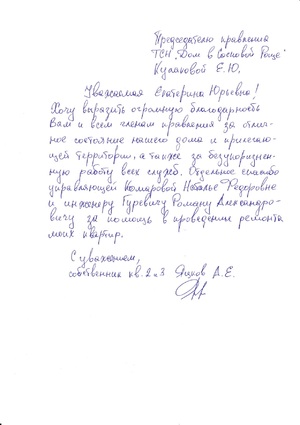 Председателю правления
ТСН „Дом в Сосновой Роще"
Кулаковой Е.Ю.
Уважаемая Екатерина Юрьевна!
Хочу выразить огромную благодарность
Вам и всем членам правления за отлич-
ное состояние нашего дома и прилегаю-
щей территории, а также за безукоризнен-
ную работу всех служб. Отдельное спасибо
управляющей Комаровой Наталье Федоровне
и инженеру Гуревичу Роману Александро-
вичу за помощь в проведении ремонта
моих квартир.
С уважением,
собственник кв. 2 и 3 Яцков А.Е.